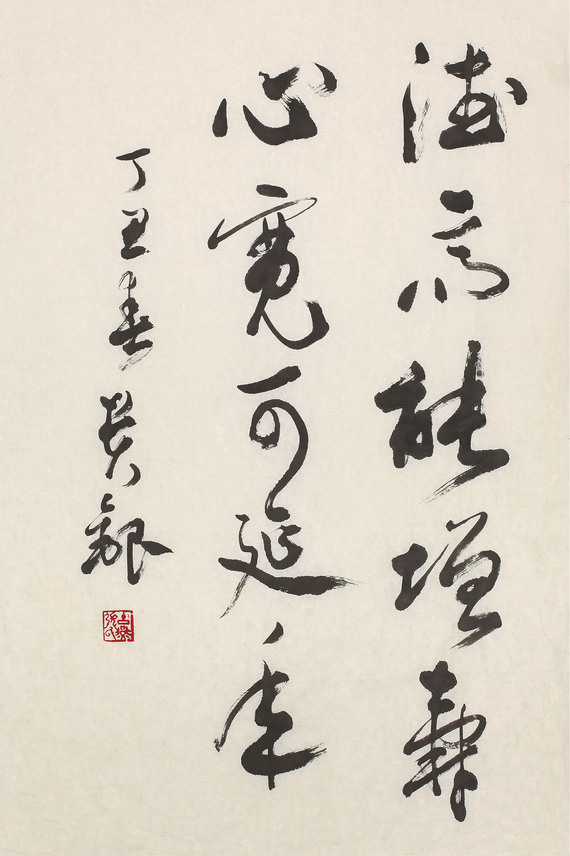 德高能增寿
心宽可延年
丁丑春